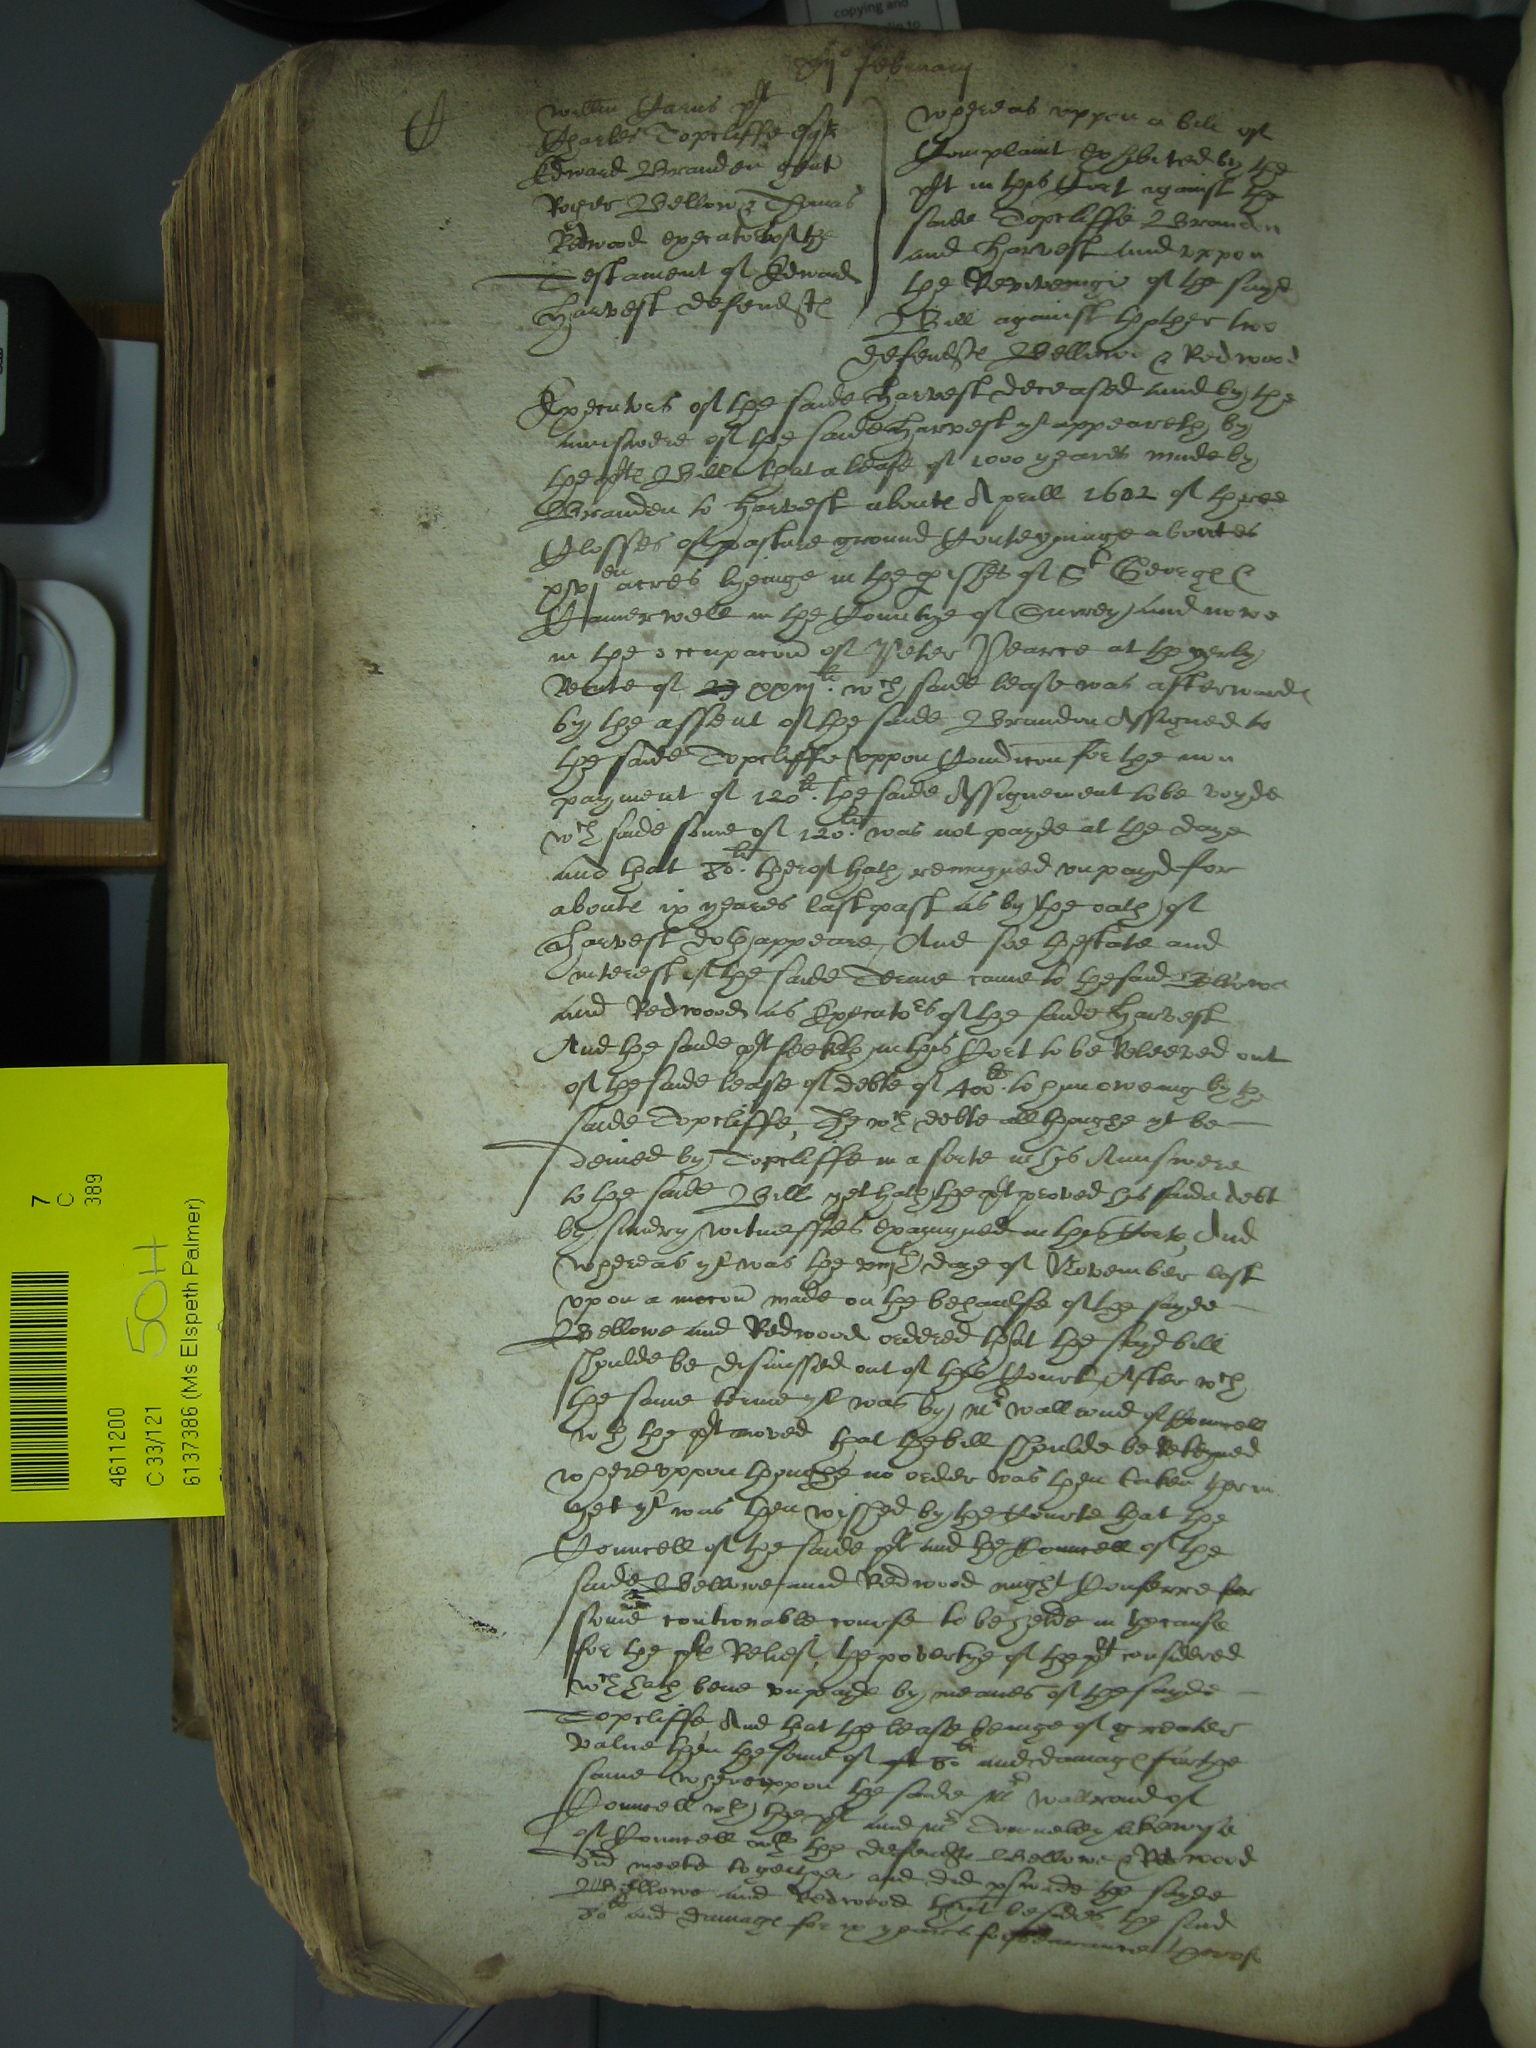 copying and
xijo februarij
Willm Jarvis plt
Charles Topcliffe esqr
Edward Brandon gent
Roger Bellow & Thomas
Redwood executors of the
Testament of Edward
Harvest defendtes
Whereas uppon a bill of
Complaint exhibited by the
plt in this Cort against the
saide Topcliffe Brandon
and Harvest and uppon
the Reviveinge of the sayd
Bill against thother two
defendtes Bellowe & Redwood
Executors of the saide Harvest deceased and by the
aunswere of the saide Harvest yt appeareth by
the plts Bill that a lease of 1000 yeares made by
Brandon to Harvest aboute Aprill 1602 of three
Closses of pasture ground Conteyninge aboutes
acres lyeinge in the pishes of St Georges
Camerwell in the Countye of Surrey and nowe
in the occupacon of Peter Pearce at the yerly
Rente of xxiijli. wch saide lease was afterwards
by the assent of the saide Brandon Assigned to
the saide Topcliffe uppon Condicon for the non
payment of 120li. the saide Assignement to be voyde
wch saide some of 120li. was not payde at the daye
and that 80li. therof hath remayned unpayd for
aboute ix yeares last past as by the oath of
Harvest doth appeare, And soe thestate and
interest of the saide Terme came to the said Bellowe
and Redwood as Executors of the saide Harvest
And the saide plt seeketh in this Cort to be Releeved out
of the saide lease of debte of 400li. to him oweing by the
saide Topcliffe, The wch debte allthoughe yt be
denied by Topcliffe in a sorte in his Aunswere
to the saide Bill yet hath the plt proved his saide debt
by sundry witnesses examyned in this Corte, And
whereas yt was the daye of November last
upon a mocon made on the behaulfe of the sayde
Bellowe and Redwood ordered that the sayd bill
shoulde be dismissed out of this Court After wch
the same terme yt was by Mr Wallrond of Councell
wth the plt moved that the bill shoulde be Reteyned
whereuppon thoughe no order was then taken therin
yet yt was then wished by the Courte that the
Councell of the saide plt and the Councell of the
saide Bellowe and Redwood might Conferre for
some contionable course to be helde in the cause
for the plts Relief, the povertye of the plt considered
wch hath bene unpayde by meanes of the sayde
Topcliffe, And that the lease beinge of greater
value then the some of 80li and damages for the
same whereuppon the saide Mr Wallrond of
Councell wth the plt and Mr Towneley likewise
of Councell wth the defendtes Bellowe & Redwood
did meete together and did pswade the sayde
Bellowe and Redwood that besides the said
80li and damages for ix yeares forbearance therof
7
C
389
50H
4611200
C 33/121
6137386 (Ms Elspeth Palmer)